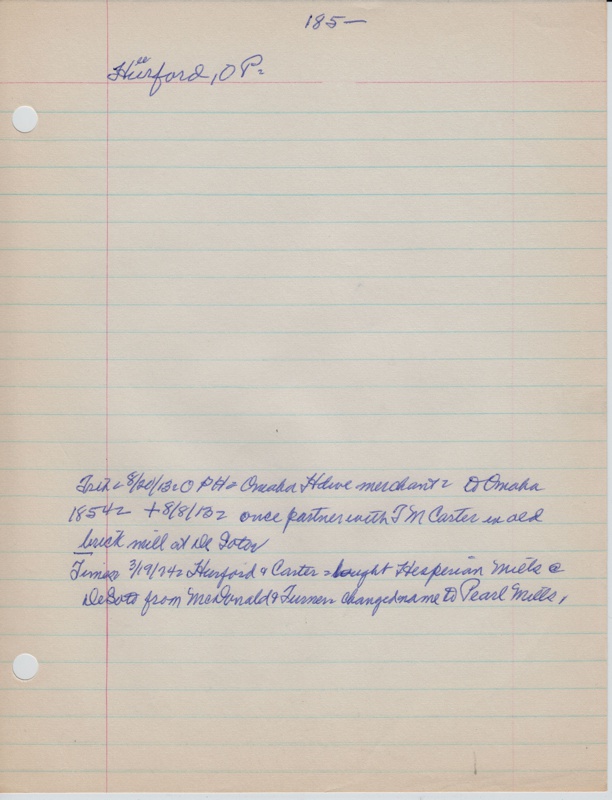 185—
Hurford, O P=
Trib= 8/20/13= O P H= Omaha Hdwe merchant= to Omaha
1854= +8/8/13= once partner with T M Carter in old
brick mill at De Soto/
Times 3/19/74= Hurford & Carter= bought Hesperian Mills @
DeSoto from McDonald & Turner= changed name to Pearl Mills,